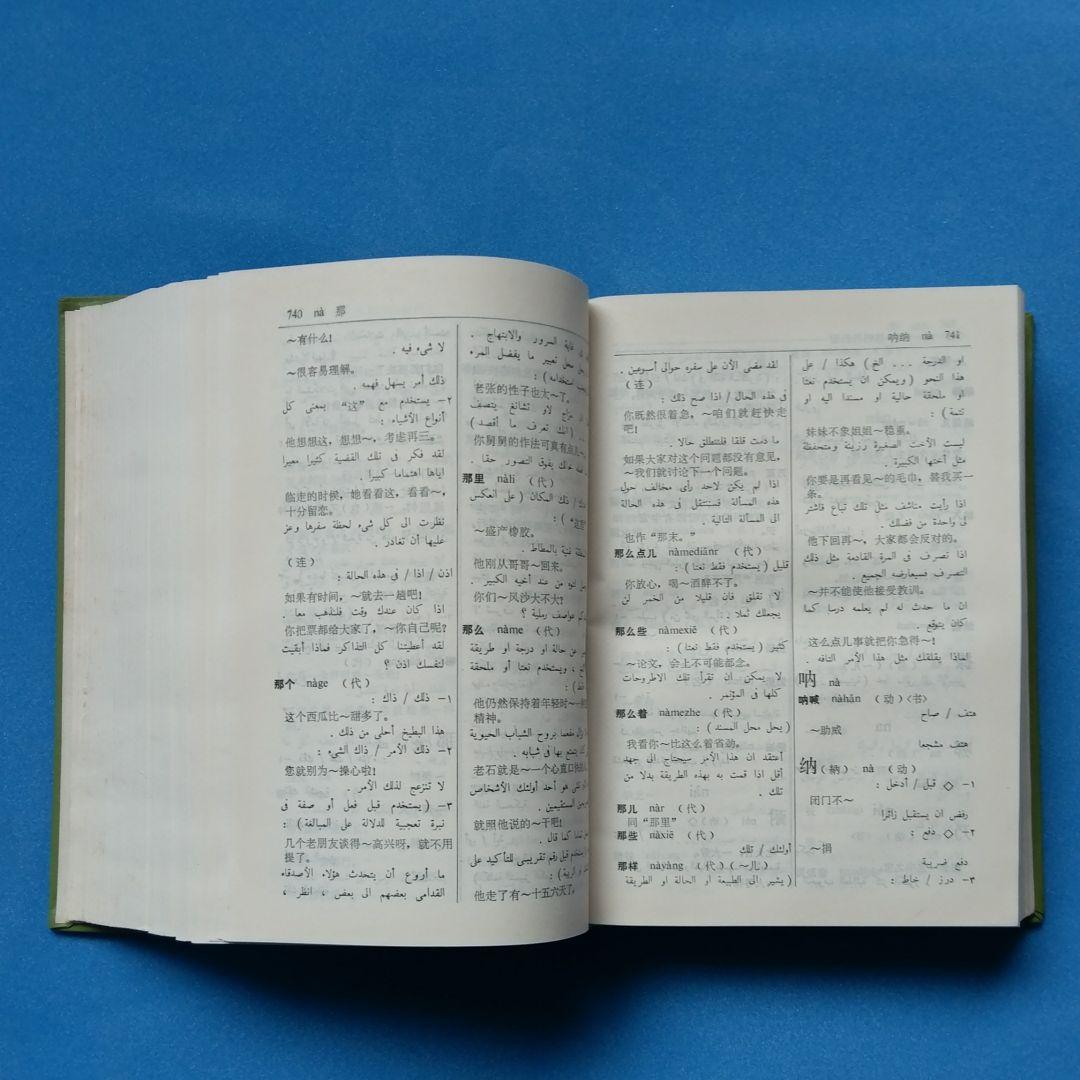 740 nà 那
～有什么!
لا شىء فيه .
～很容易理解。
ذلك أمر يسهل فهمه .
٢- يستخدم مع "这" بمعنى كل
أنواع الأشياء :
他想想这，想想～，考虑再三。
لقد فكر فى تلك القضية كثيرا معيرا
اياها اهتماما كبيرا .
临走的时候，她看看这，看看～，
十分留恋。
نظرت الى كل شىء لحظة سفرها وعز
عليها أن تغادر .
(连)
اذن / اذا / فى هذه الحالة :
如果有时间，～就去一趟吧!
اذا كان عندك وقت فلنذهب معا .
你把票都给大家了，～你自己呢?
لقد أعطيتنا كل التذاكر فماذا أبقيت
لنفسك اذن ؟
那个 nàge (代)
١- ذلك / ذاك :
这个西瓜比～甜多了。
هذا البطيخ أحلى من ذلك .
٢- ذلك الأمر / ذاك الشىء :
您就别为～操心啦!
لا تنزعج لذلك الأمر .
٣- (يستخدم قبل فعل أو صفة فى
نبرة تعجبية للدلالة على المبالغة) :
几个老朋友谈得～高兴呀，就不用
提了。
ما أروع أن يتحدث هؤلاء الأصدقاء
القدامى بعضهم الى بعض ، انظر ،
غاية السرور والابتهاج .
محل تعبير ما يفضل المرء
استخدامه) :
老张的性子也太～了。
مزاج لاو تشانغ يتصف
... (انك تعرف ما أقصد)
你舅舅的作法可真有点儿～
خالك يفوق التصور حقا .
那里 nàli (代)
ذلك المكان (على العكس
"这里") :
～盛产橡胶。
غنية بالمطاط .
他刚从哥哥～回来。
لتوه من عند أخيه الكبير .
你们～风沙大不大?
عواصف رملية ؟
那么 nàme (代)
عن حالة او درجة او طريقة
، ويستخدم نعتا او ملحقة
他仍然保持着年轻时～
精神。
مفعما بروح الشباب الحيوية
يتمتع بها فى شبابه .
老石就是～一个心直口快的人
هو أحد اولئك الأشخاص
المستقيمين .
就照他说的～干吧!
كما قال .
قبل رقم تقريبى للتأكيد على
他走了有～十五六天了。
呐纳 nà 741
لقد مضى الآن على سفره حوالى أسبوعين .
(连)
فى هذه الحال / اذا صح ذلك :
你既然很着急，～咱们就赶快走
吧!
ما دمت قلقا فلننطلق حالا .
如果大家对这个问题都没有意见，
～我们就讨论下一个问题。
اذا لم يكن لاحد رأى مخالف حول
هذه المسألة فسننتقل فى هذه الحالة
الى المسألة التالية .
也作“那末。”
那么点儿 nàmediǎnr (代)
قليل (يستخدم فقط نعتا) :
你放心，喝～酒醉不了。
لا تقلق فان قليلا من الخمر لن
يجعلك ثملا :
那么些 nàmexiē (代)
كثير (يستخدم فقط نعتا) :
～论文，会上不可能都念。
لا يمكن ان تقرأ تلك الاطروحات
كلها فى المؤتمر .
那么着 nàmezhe (代)
(يحل محل المسند) :
我看你～比这么着省劲。
أعتقد ان هذا الأمر سيحتاج الى جهد
أقل اذا قمت به بهذه الطريقة بدلا من
تلك .
那儿 nàr (代)
同“那里”
那些 nàxiē (代)
أولئك / تلك
那样 nàyàng (代) (～儿)
(يشير الى الطبيعة او الحالة او الطريقة
او الدرجة ... الخ) هكذا / على
هذا النحو (ويمكن ان يستخدم نعتا
او ملحقة حالية او مسندا اليه او
تتمة) :
妹妹不象姐姐～稳重。
ليست الأخت الصغيرة رزينة ومتحفظة
مثل أختها الكبيرة .
你要是再看见～的毛巾，替我买一
条。
اذا رأيت مناشف مثل تلك تباع فاشتر
لى واحدة من فضلك .
他下回再～，大家都会反对的。
اذا تصرف فى المرة القادمة مثل ذلك
التصرف فسيعارضه الجميع .
～并不能使他接受教训。
ان ما حدث له لم يعلمه درسا كما
كان يتوقع .
这么点儿事就把你急得～!
لماذا يقلقك مثل هذا الأمر التافه .
呐 nà
呐喊 nàhǎn (动)〈书〉
هتف / صاح
～助威
هتف مشجعا
纳 (納) nà (动)
١- ◇ قبل / أدخل :
闭门不～
رفض ان يستقبل زائرا
٢- ◇ دفع :
～捐
دفع ضريبة
٣- درز / خاط :